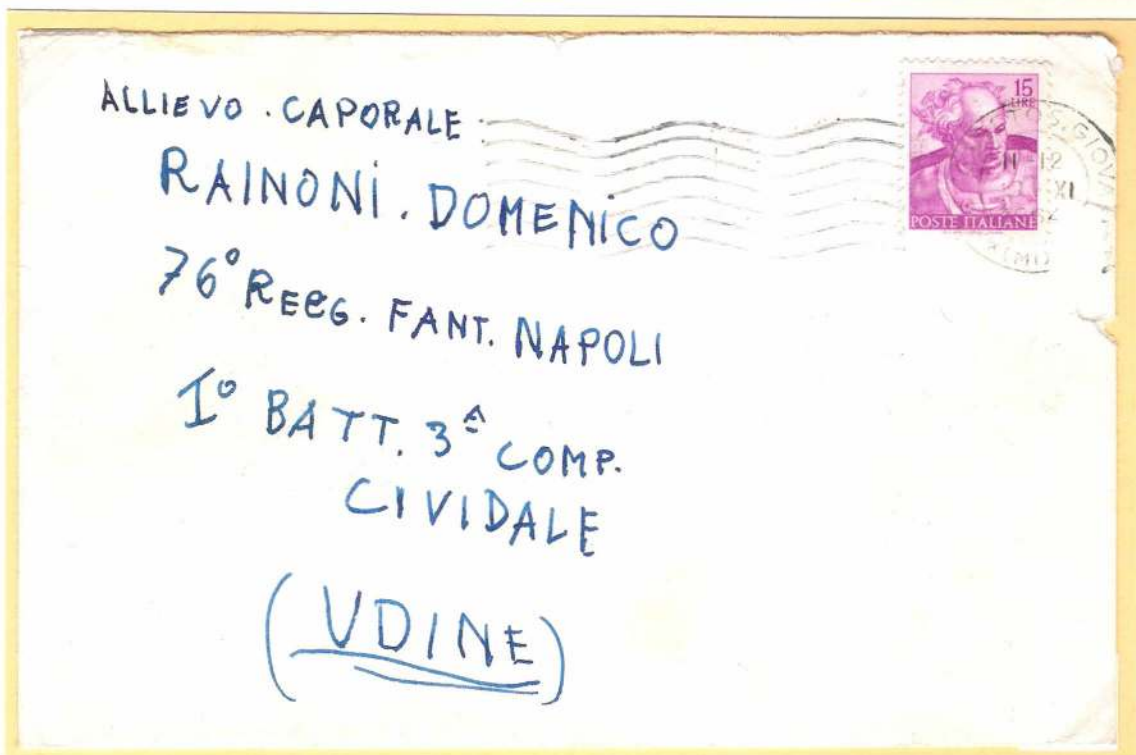 ALLIEVO. CAPORALE
RAINONI. DOMENICO
76° REGG. FANT. NAPOLI
I° BATT. 3ª COMP.
CIVIDALE
(UDINE)
15
LIRE
POSTE ITALIANE
S. GIOVA
11-12
XI
(MI)